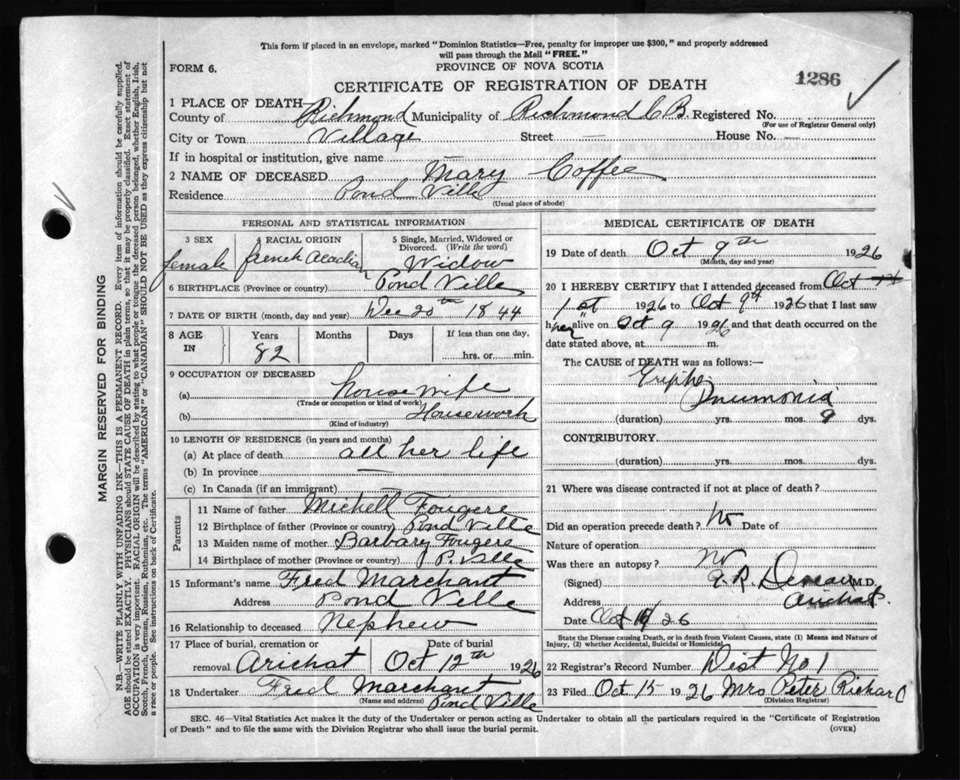 This form if placed in an envelope, marked "Dominion Statistics—Free, penalty for improper use $300," and properly addressed
will pass through the Mail "FREE."
FORM 6.
PROVINCE OF NOVA SCOTIA
CERTIFICATE OF REGISTRATION OF DEATH
1286
1 PLACE OF DEATH—
County of Richmond Municipality of Richmond C B. Registered No.
(For use of Registrar General only)
City or Town Village Street — House No. —
If in hospital or institution, give name —
2 NAME OF DECEASED Mary Coffee
Residence Pond Ville
(Usual place of abode)
PERSONAL AND STATISTICAL INFORMATION
3 SEX
female
4 RACIAL ORIGIN
french Acadian
5 Single, Married, Widowed or
Divorced. (Write the word)
Widow
6 BIRTHPLACE (Province or country) Pond Ville
7 DATE OF BIRTH (month, day and year) Dec 20th 1844
8 AGE
IN
Years
82
Months
Days
If less than one day,
hrs. or min.
9 OCCUPATION OF DECEASED
(a) housewife
(Trade or occupation or kind of work)
(b) Housework
(Kind of industry)
10 LENGTH OF RESIDENCE (in years and months)
(a) At place of death all her life
(b) In province —
(c) In Canada (if an immigrant)
Parents
11 Name of father Michell Fougere
12 Birthplace of father (Province or country) Pond Ville
13 Maiden name of mother Barbary Fougere
14 Birthplace of mother (Province or country) P. Ville
15 Informant's name Fred Marchant
Address Pond Ville
16 Relationship to deceased Nephew
17 Place of burial, cremation or
removal Arichat
Date of burial
Oct 12th 1926
18 Undertaker Fred Marchant
(Name and address) Pond Ville
MEDICAL CERTIFICATE OF DEATH
19 Date of death Oct 9th 1926
(Month, day and year)
20 I HEREBY CERTIFY that I attended deceased from Oct
1st 1926 to Oct 9th 1926 that I last saw
her alive on Oct 9 1926 and that death occurred on the
date stated above, at m.
The CAUSE OF DEATH was as follows:—
Pneumonia
(duration) yrs. mos. 9 dys.
CONTRIBUTORY.
(duration) yrs. mos. dys.
21 Where was disease contracted if not at place of death?
Did an operation precede death? No Date of
Nature of operation
Was there an autopsy? No
(Signed) Deveau M.D.
Address Arichat
Date Oct 26
State the Disease causing Death, or in death from Violent Causes, state (1) Means and Nature of
Injury, (2) whether Accidental, Suicidal or Homicidal.
22 Registrar's Record Number Dist No 1
23 Filed Oct 15 1926 Mrs Peter Richard
(Division Registrar)
SEC. 46—Vital Statistics Act makes it the duty of the Undertaker or person acting as Undertaker to obtain all the particulars required in the "Certificate of Registration
of Death" and to file the same with the Division Registrar who shall issue the burial permit.
(OVER)
MARGIN RESERVED FOR BINDING
N.B.—WRITE PLAINLY WITH UNFADING INK—THIS IS A PERMANENT RECORD. Every item of information should be carefully supplied.
AGE should be stated EXACTLY. PHYSICIANS should STATE CAUSE OF DEATH in plain terms, so that it may be properly classified. Exact statement of
OCCUPATION is very important. RACIAL ORIGIN will be described by stating to what people or tongue the deceased person belonged, whether English, Irish,
Scotch, French, German, Russian, Ruthenian, etc. The terms "AMERICAN" or "CANADIAN" SHOULD NOT BE USED as they express citizenship but not
a race or people. See instructions on back of Certificate.